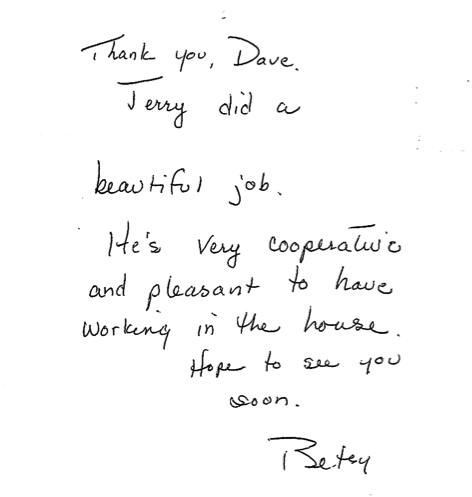 Thank you, Dave.
Jerry did a
beautiful job.
He's very cooperative
and pleasant to have
working in the house.
Hope to see you
soon.
Betsy